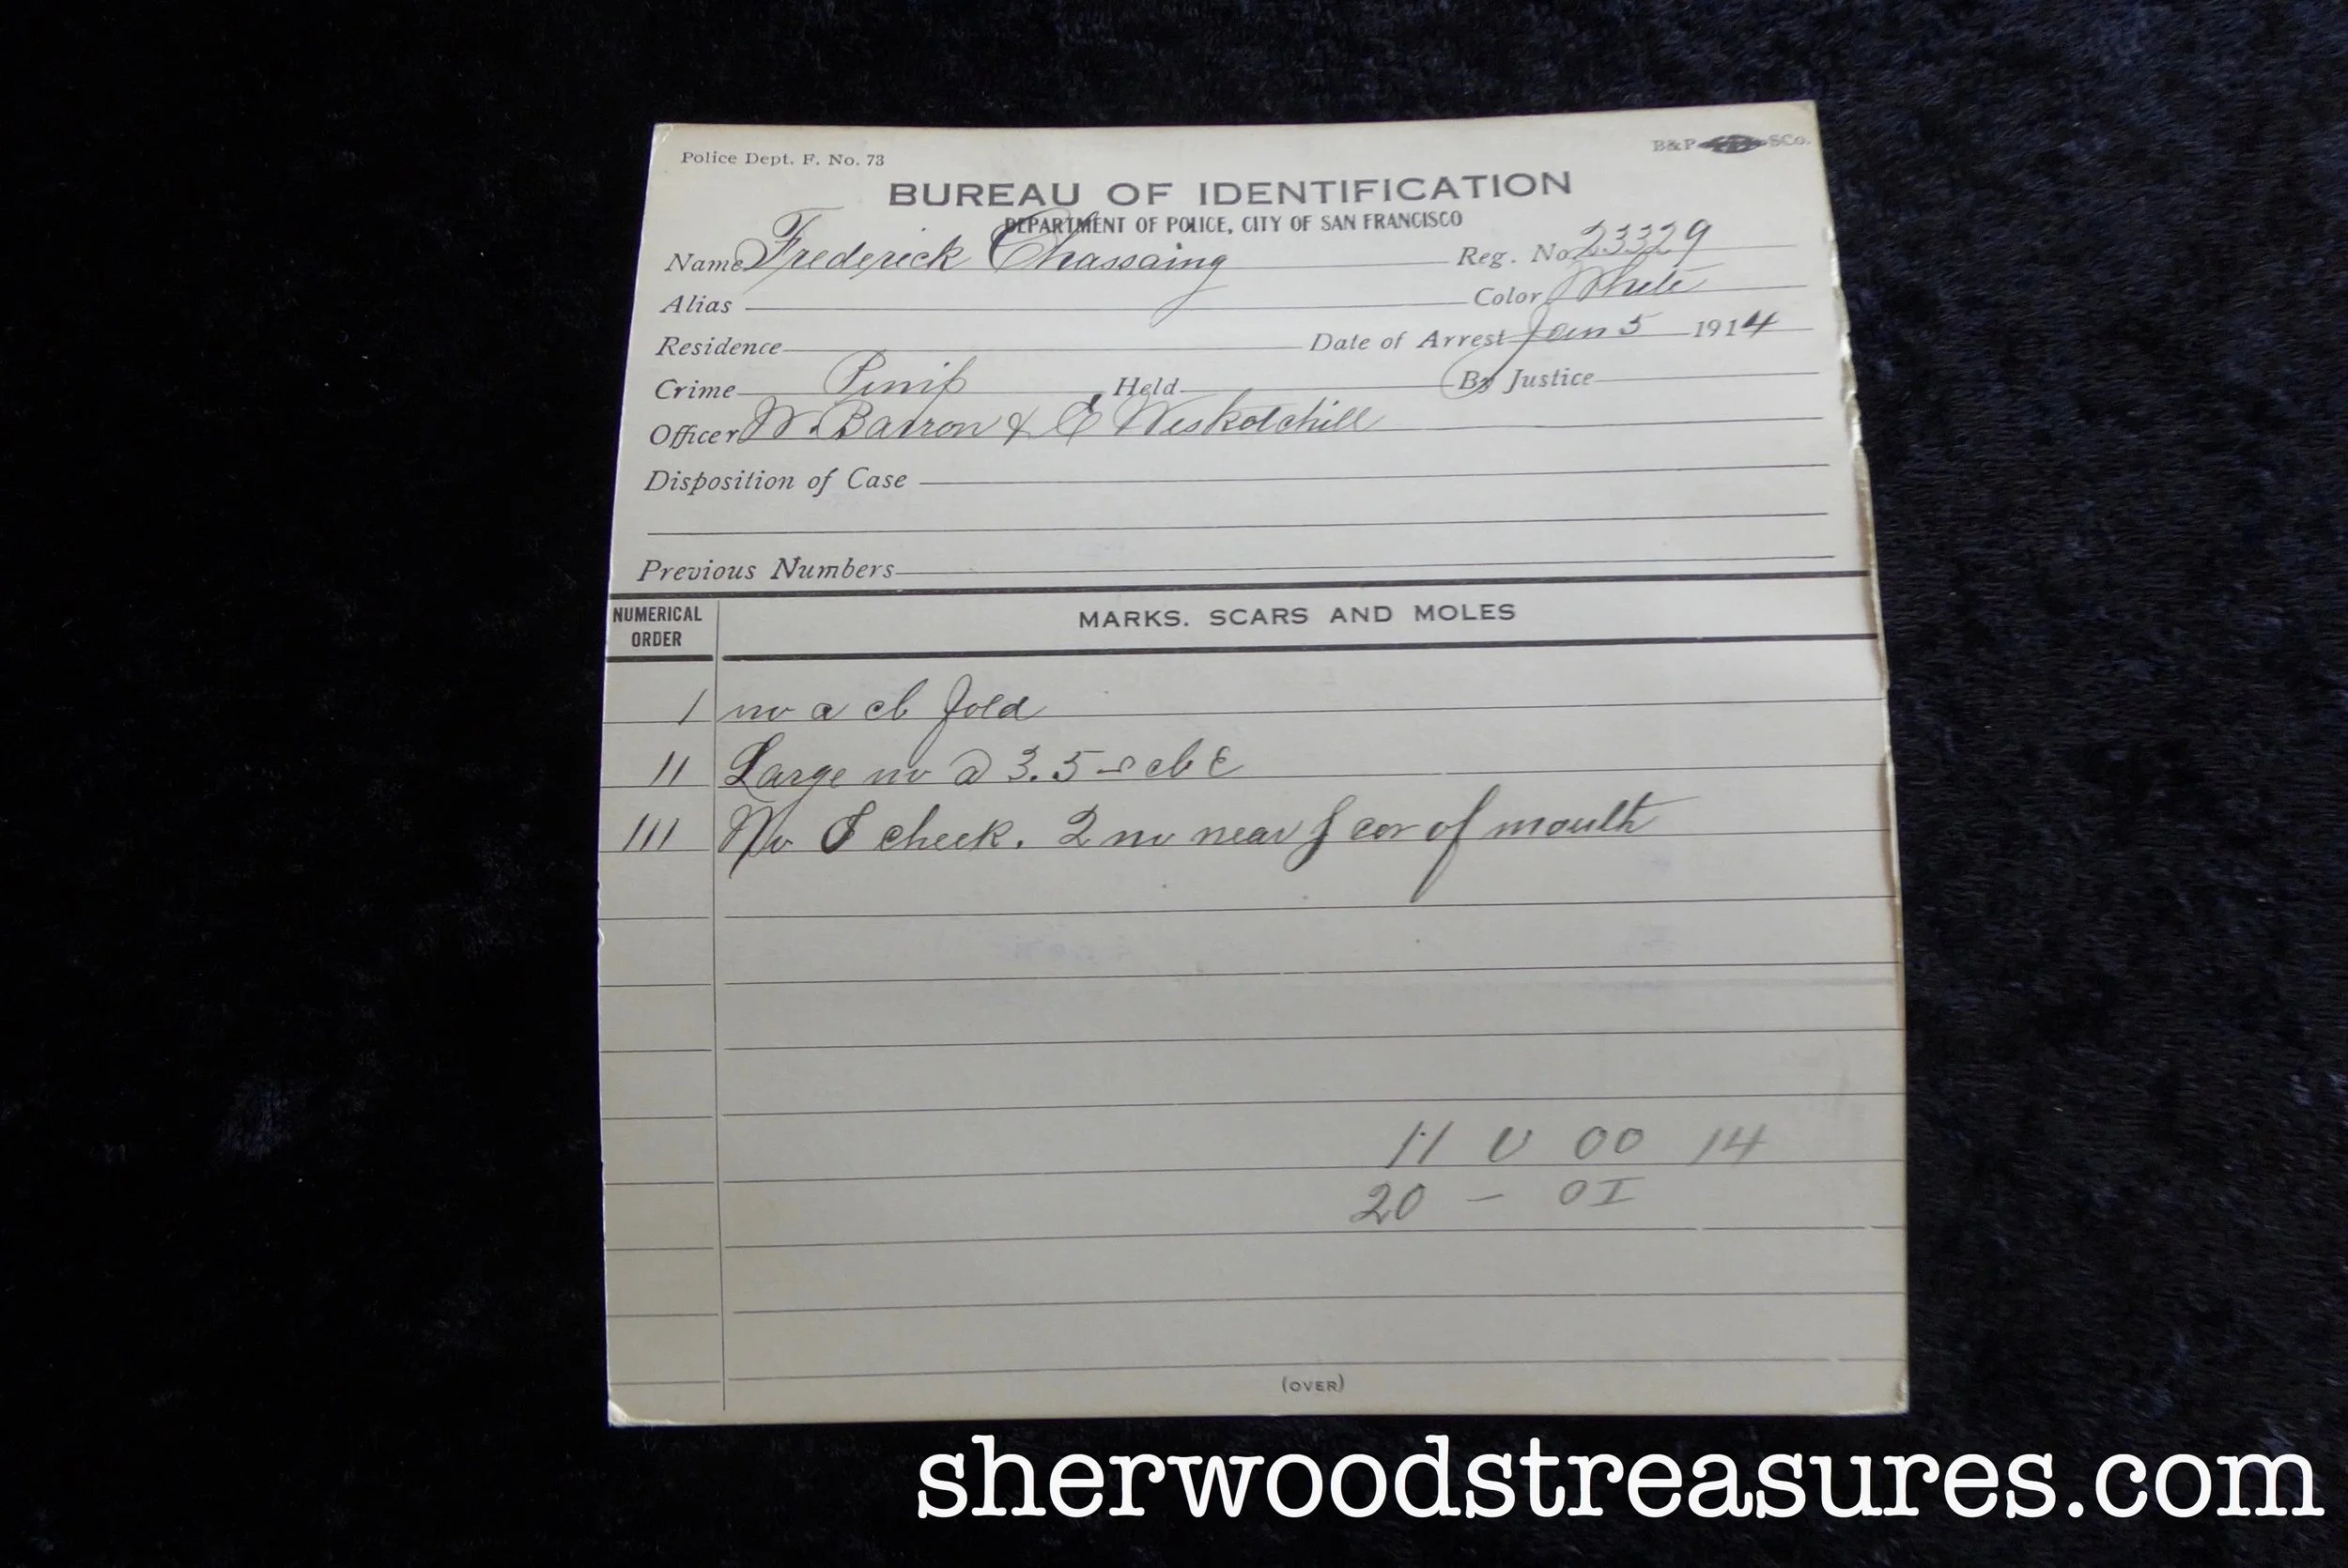 Police Dept. F. No. 73
B&P SCo.
BUREAU OF IDENTIFICATION
DEPARTMENT OF POLICE, CITY OF SAN FRANCISCO
Name Frederick Chassaing Reg. No. 23329
Alias Color White
Residence Date of Arrest Jan 5 1914
Crime Held By Justice
Officer W. Barron & E
Disposition of Case
Previous Numbers
NUMERICAL ORDER MARKS. SCARS AND MOLES
I nv a cb fold
II Large nv a 3.5 cb E
III Nv cheek. 2 nv near cor of mouth
11 U OO 14
20 — OI
(OVER)
sherwoodstreasures.com